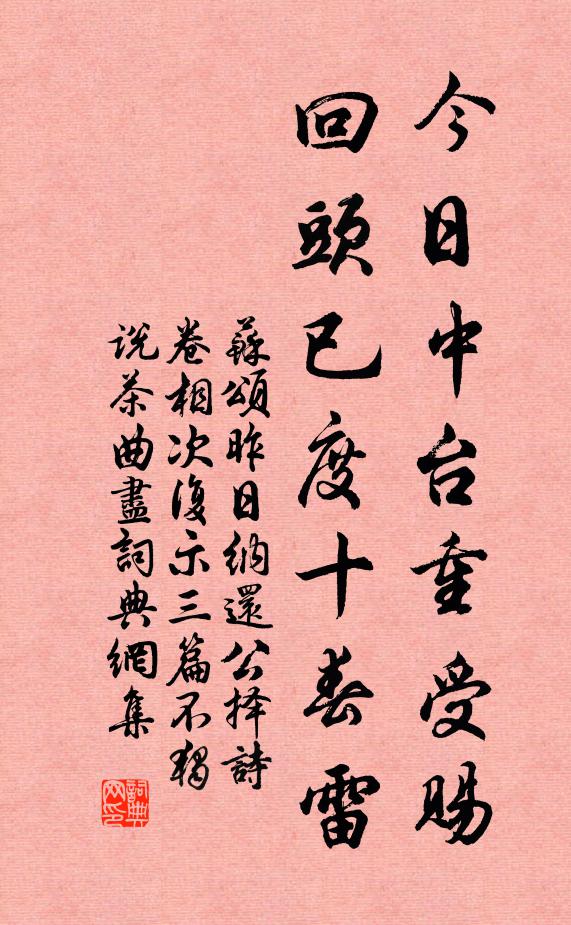 今日中台重受賜
回頭已度十春雷
蘇頌昨日納還公擇詩
卷相次復示三篇不獨
説茶曲盡詞典網集
詞典
网印